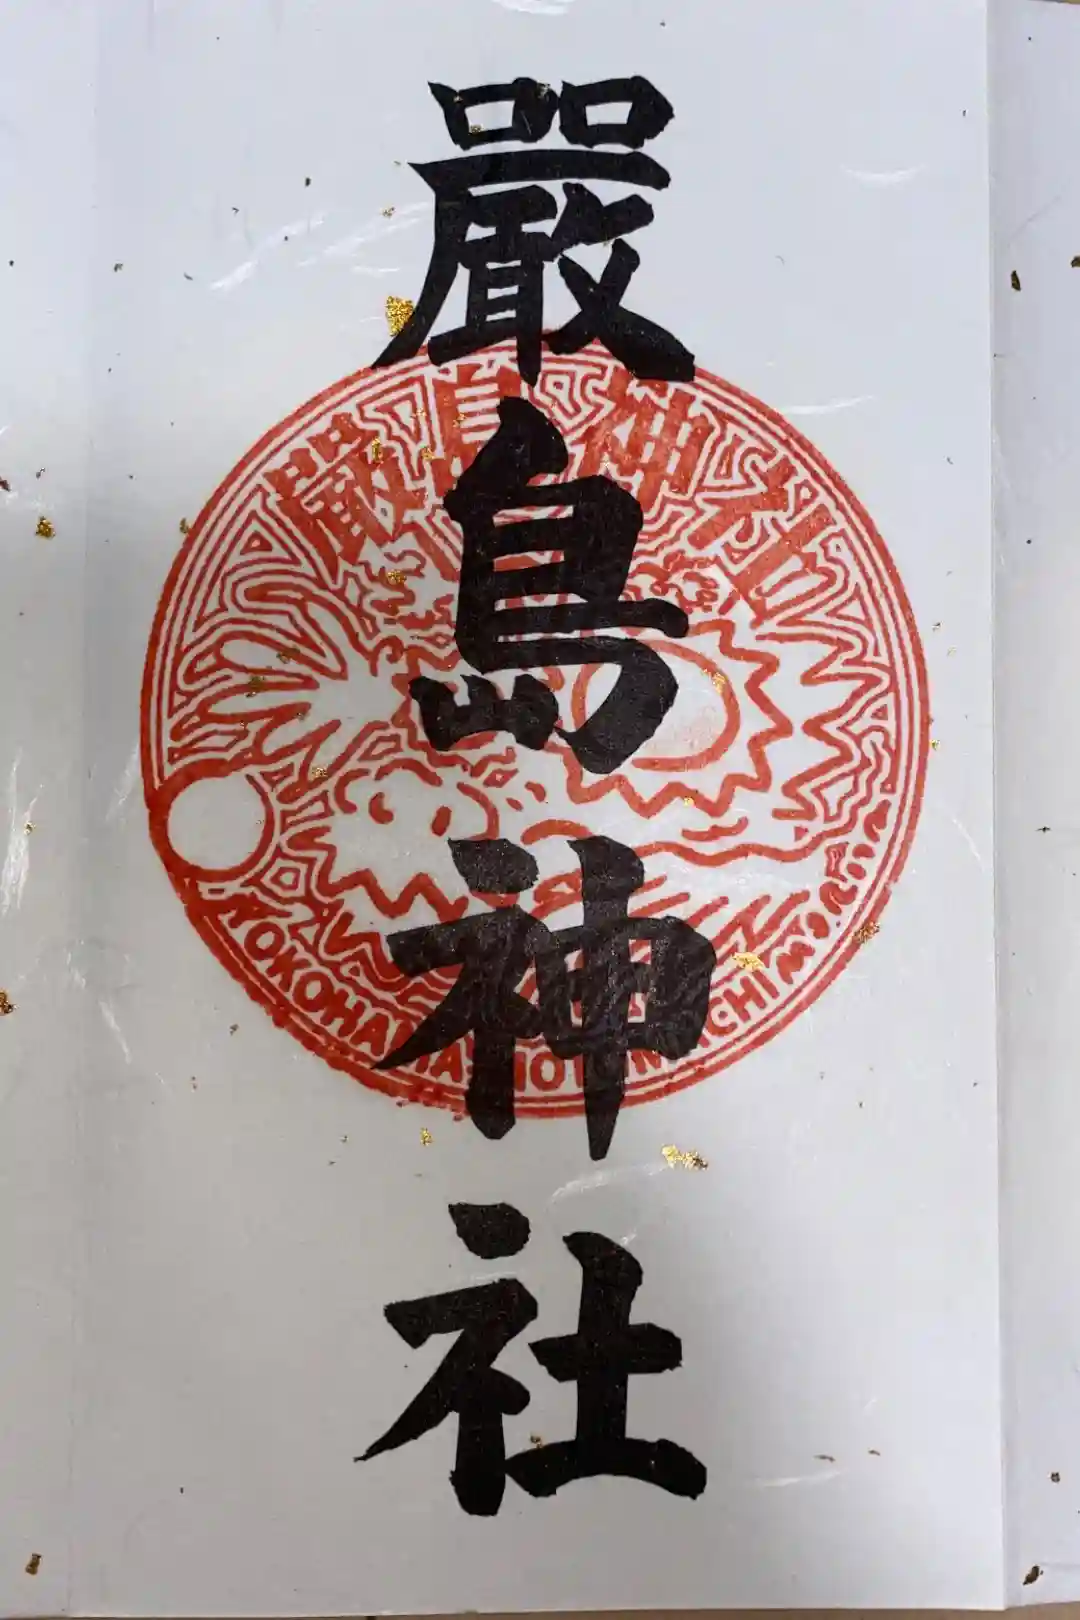 嚴島神社
嚴島神社
YOKOHAMA MOTOMACHI